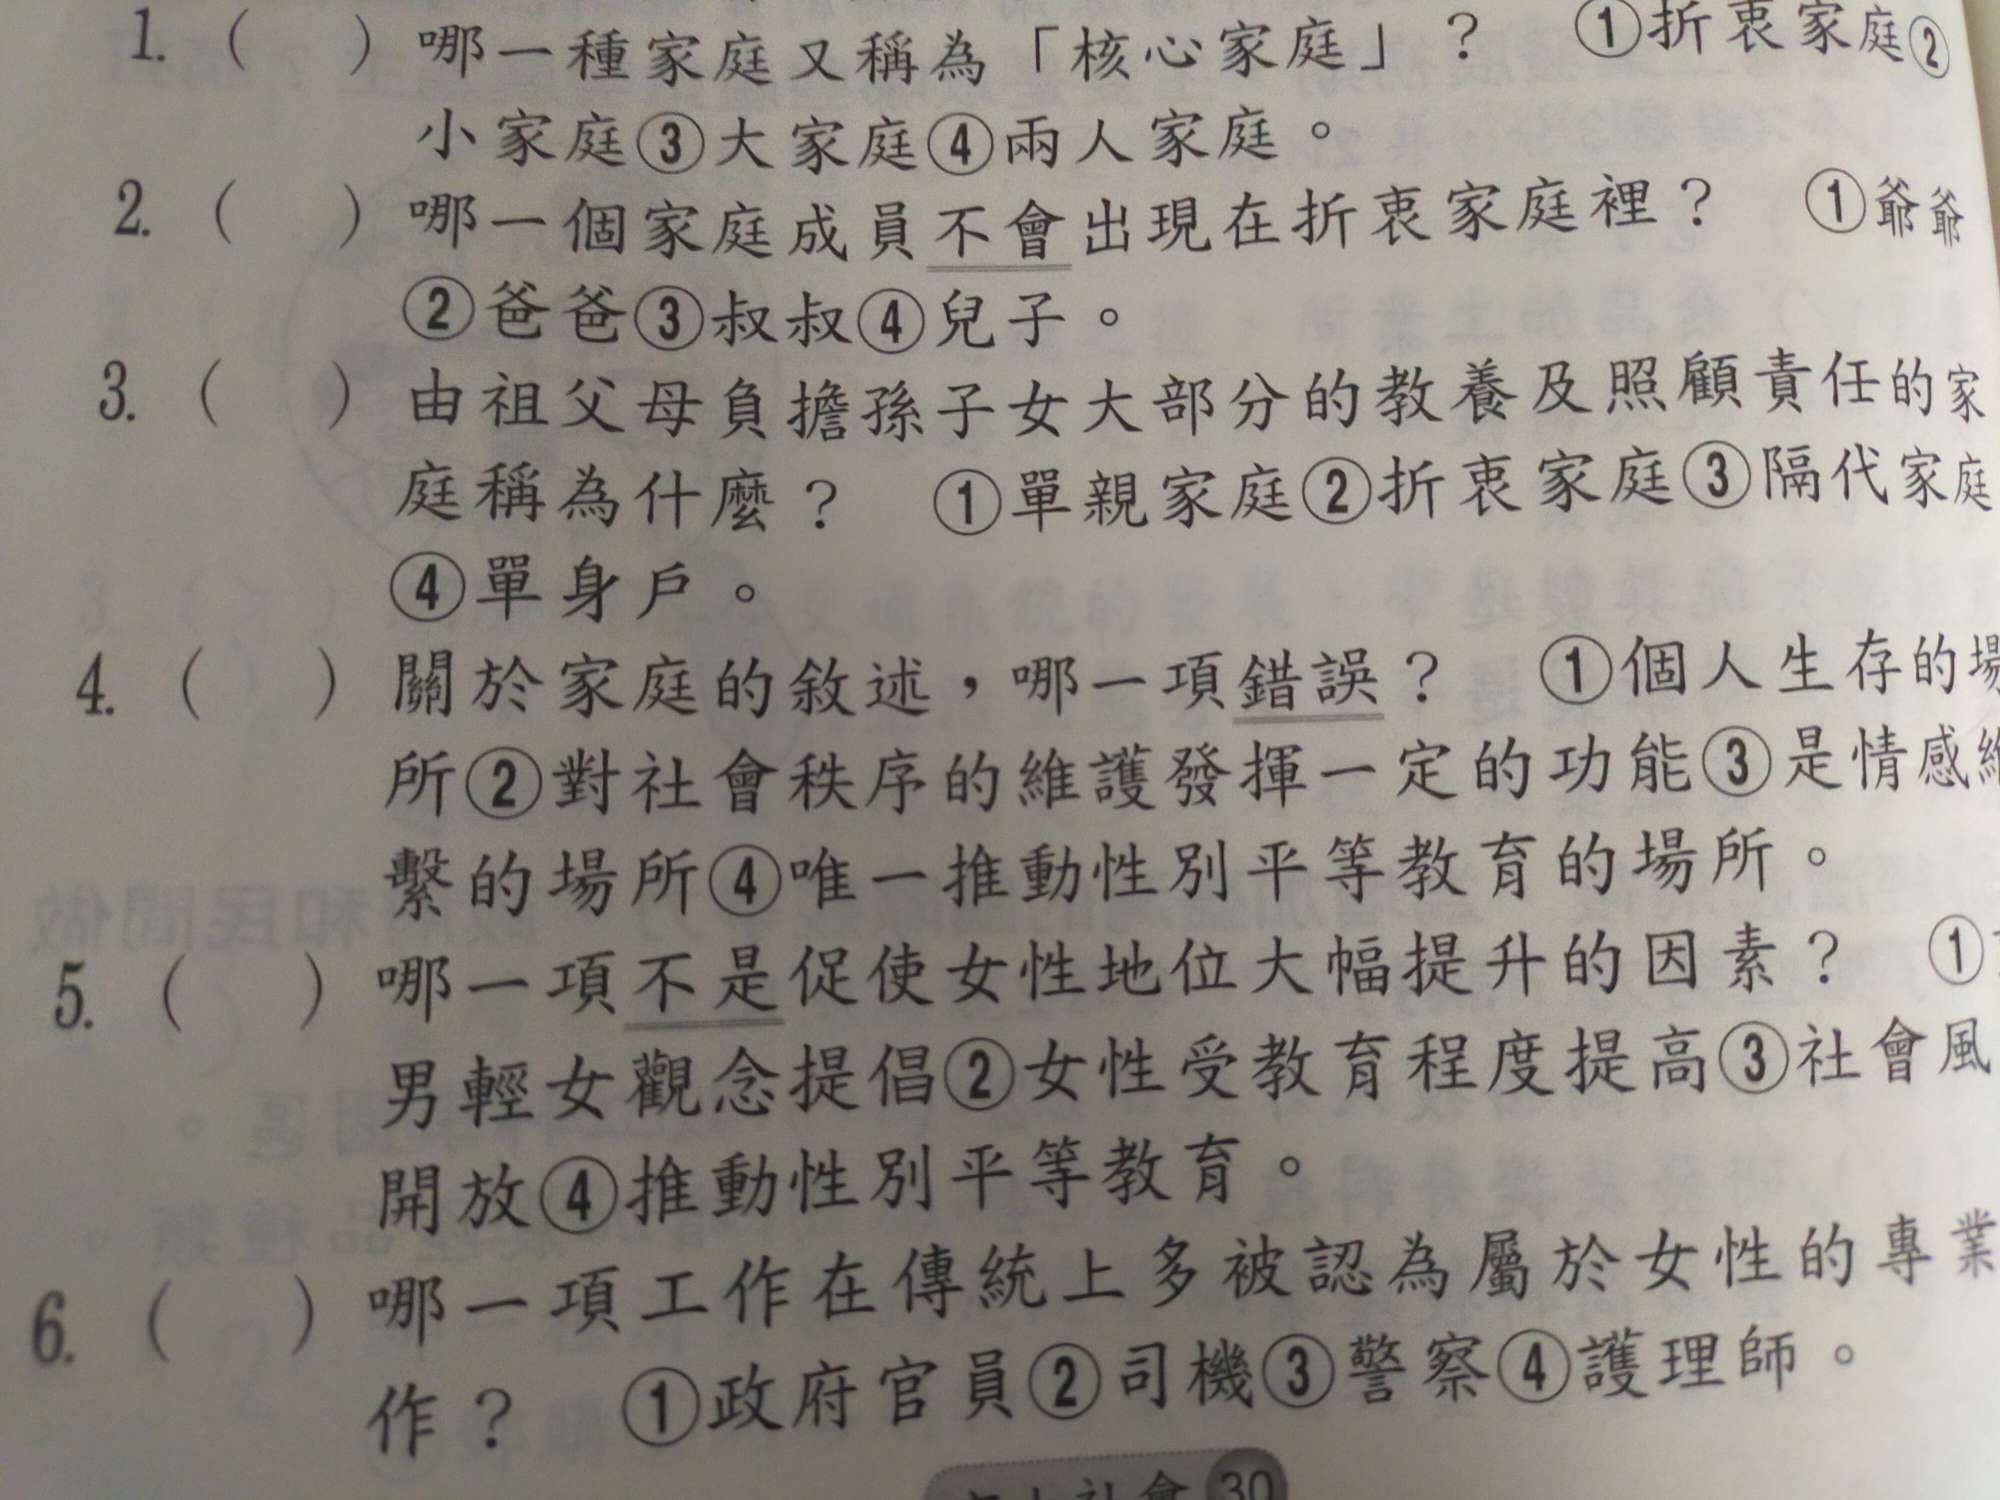 1. (　　) 哪一種家庭又稱為「核心家庭」？　①折衷家庭②
小家庭③大家庭④兩人家庭。
2. (　　) 哪一個家庭成員不會出現在折衷家庭裡？　①爺爺
②爸爸③叔叔④兒子。
3. (　　) 由祖父母負擔孫子女大部分的教養及照顧責任的家
庭稱為什麼？　①單親家庭②折衷家庭③隔代家庭
④單身戶。
4. (　　) 關於家庭的敘述，哪一項錯誤？　①個人生存的場
所②對社會秩序的維護發揮一定的功能③是情感維
繫的場所④唯一推動性別平等教育的場所。
5. (　　) 哪一項不是促使女性地位大幅提升的因素？　①
男輕女觀念提倡②女性受教育程度提高③社會風
開放④推動性別平等教育。
6. (　　) 哪一項工作在傳統上多被認為屬於女性的專業
作？　①政府官員②司機③警察④護理師。
社會 30